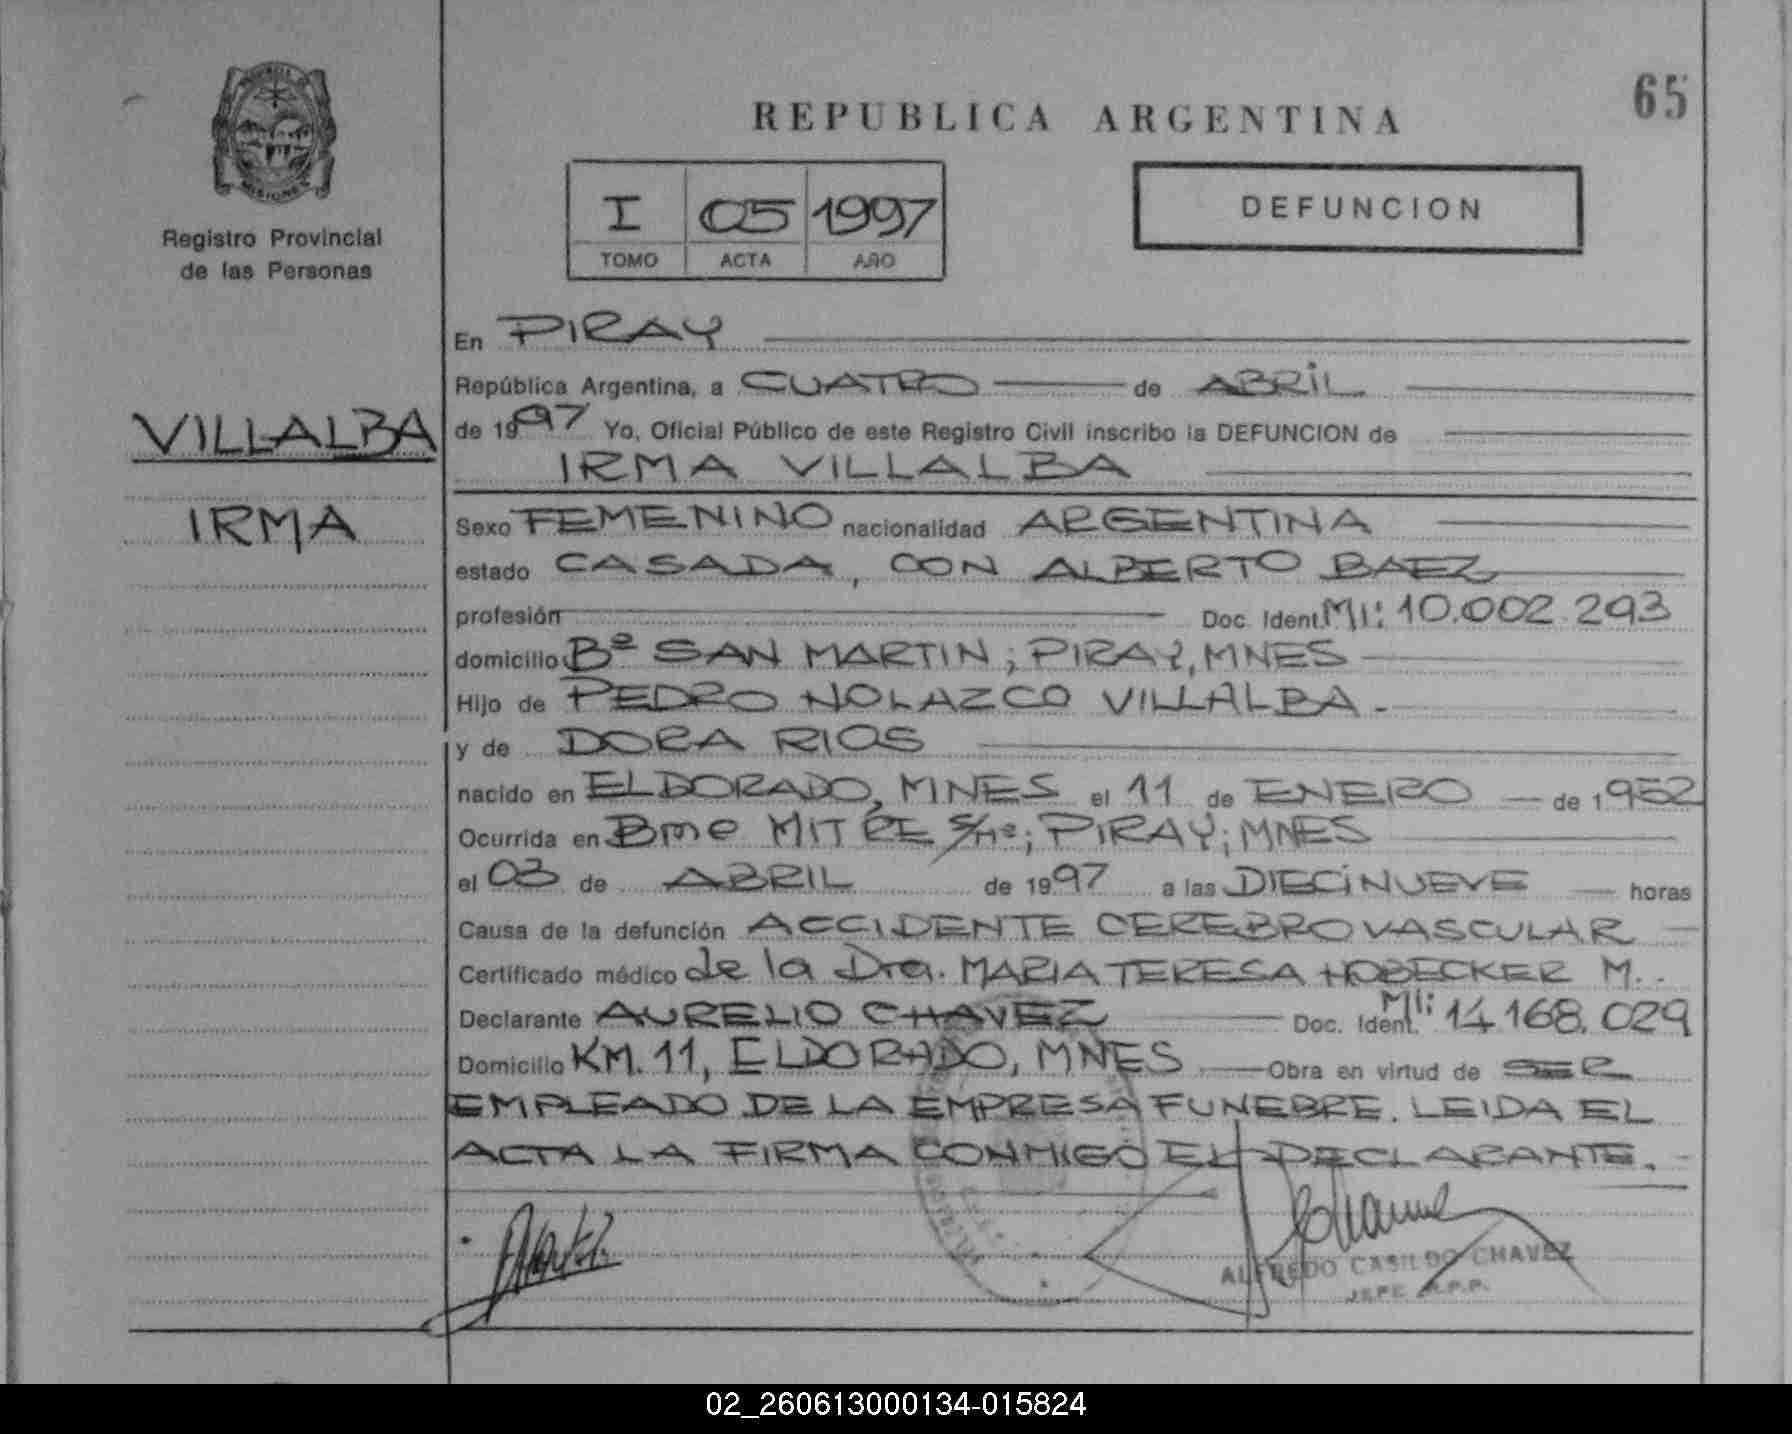 65
REPUBLICA ARGENTINA
MISIONES
Registro Provincial
de las Personas
I 05 1997
TOMO ACTA AÑO
DEFUNCION
VILLALBA
IRMA
En PIRAY
República Argentina, a CUATRO de ABRIL
de 1997 Yo, Oficial Público de este Registro Civil inscribo la DEFUNCION de
IRMA VILLALBA
Sexo FEMENINO nacionalidad ARGENTINA
estado CASADA, CON ALBERTO BAEZ
profesión Doc. Ident. MI: 10.002.293
domicilio Bº SAN MARTIN; PIRAY, MNES
Hijo de PEDRO NOLAZCO VILLALBA.
y de DORA RIOS
nacido en ELDORADO, MNES el 11 de ENERO de 1952
Ocurrida en Bme MITRE S/Nº; PIRAY; MNES
el 03 de ABRIL de 1997 a las DIECINUEVE horas
Causa de la defunción ACCIDENTE CEREBRO VASCULAR
Certificado médico de la Dra. MARIA TERESA HOBECKER M.
Declarante AURELIO CHAVEZ Doc. Ident. MI: 14.168.029
Domicilio KM. 11, ELDORADO, MNES Obra en virtud de SER
EMPLEADO DE LA EMPRESA FUNEBRE. LEIDA EL
ACTA LA FIRMA CONMIGO EL DECLARANTE.
ALFREDO CASILDO CHAVEZ
JEFE R.P.P.
02_260613000134-015824